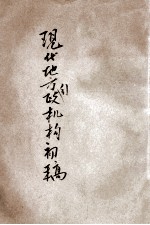 現代地方行政机构初稿